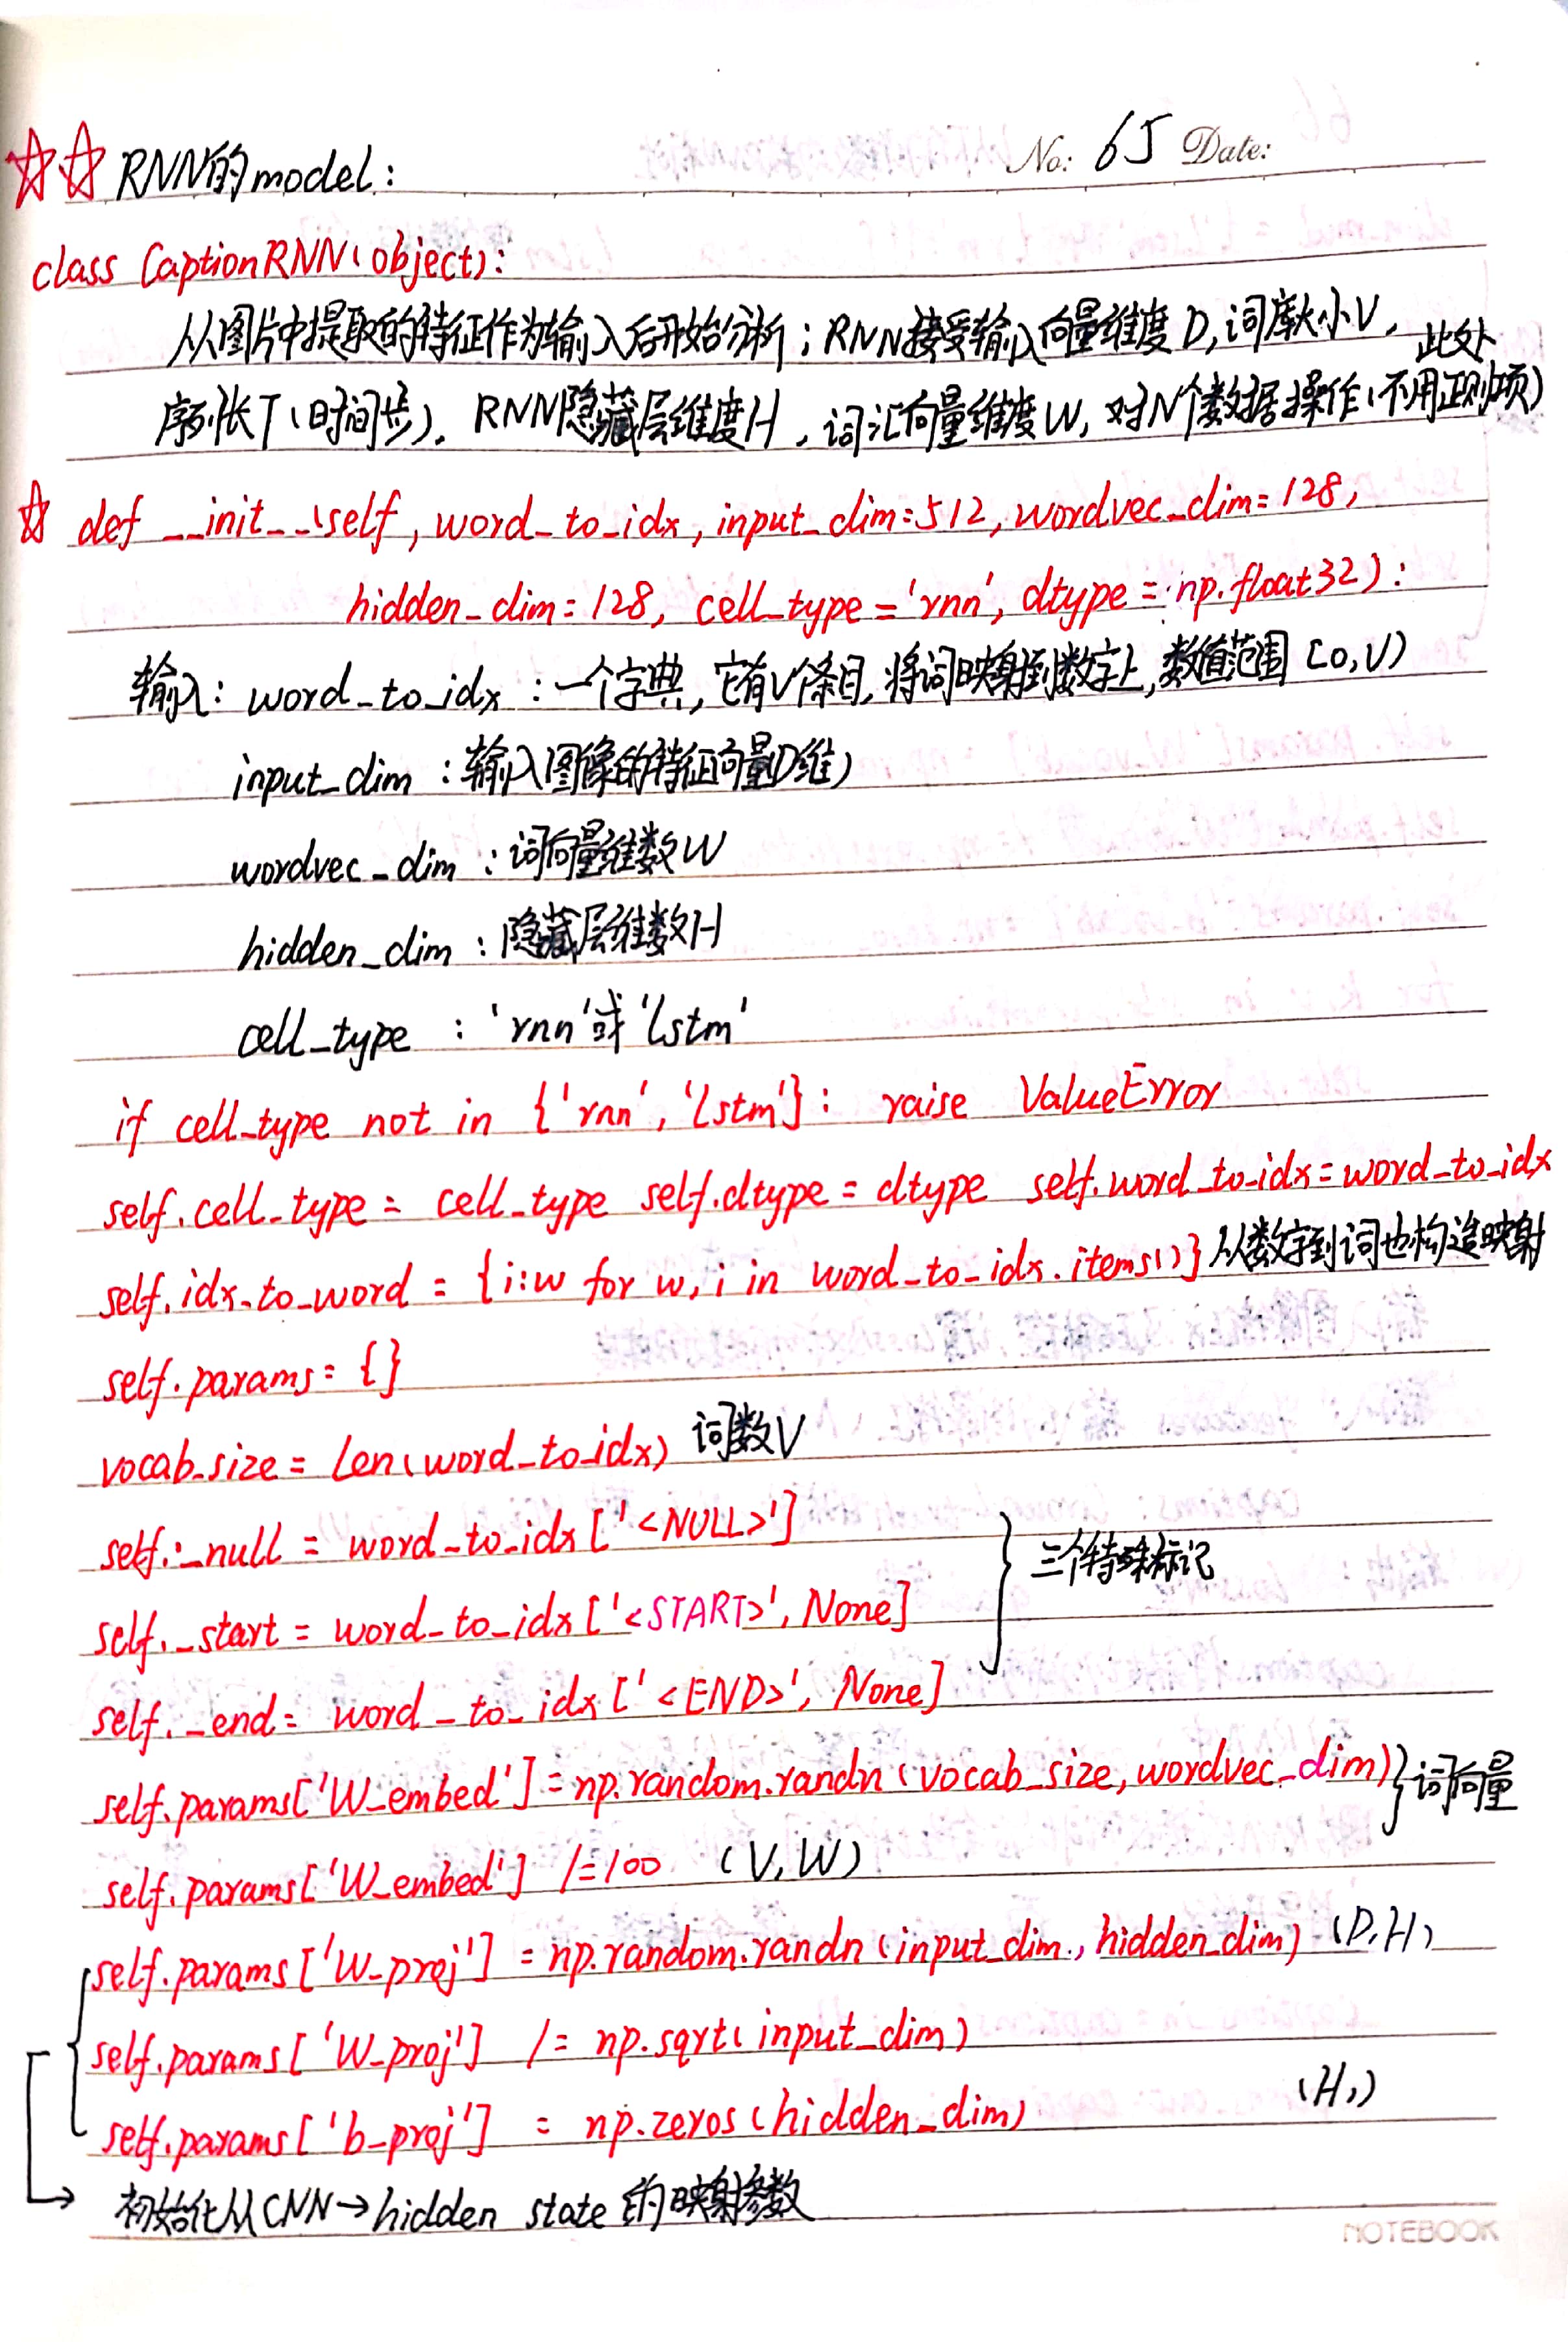 No: 65 Date:
☆☆ RNN的model:
class CaptionRNN(object):
从从图片中提取的特征作为输入后开始分析; RNN接受输入向量维度D,词库大小V,
序列长T(时间步), RNN隐藏层维度H, 词汇向量维度W, 对N个数据操作(此处不用正则项)
☆ def __init__(self, word_to_idx, input_dim=512, wordvec_dim=128,
hidden_dim=128, cell_type='rnn', dtype=np.float32):
输入: word_to_idx :一个字典,它有V个条目,将词映射到数字上,数值范围[0,V)
input_dim :输入图像的特征向量D维)
wordvec_dim :词向量维数W
hidden_dim :隐藏层维数H
cell_type :'rnn'或'lstm'
if cell_type not in {'rnn','lstm'}: raise ValueError
self.cell_type = cell_type self.dtype = dtype self.word_to_idx=word_to_idx
self.idx_to_word = {i:w for w,i in word_to_idx.items()} 从数字到词也构造映射
self.params={}
vocab_size = len(word_to_idx) 词数V
self._null = word_to_idx['<NULL>']
self._start = word_to_idx['<START>',None] } 三个特殊标记
self._end = word_to_idx['<END>',None]
self.params['W_embed']=np.random.randn(vocab_size,wordvec_dim) } 词向量
self.params['W_embed'] /=100 (V,W)
self.params['W_proj'] = np.random.randn(input_dim,hidden_dim) (D,H)
self.params['W_proj'] /= np.sqrt(input_dim)
self.params['b_proj'] = np.zeros(hidden_dim) (H,)
→ 初始化从CNN→hidden state 的映射参数
NOTEBOOK